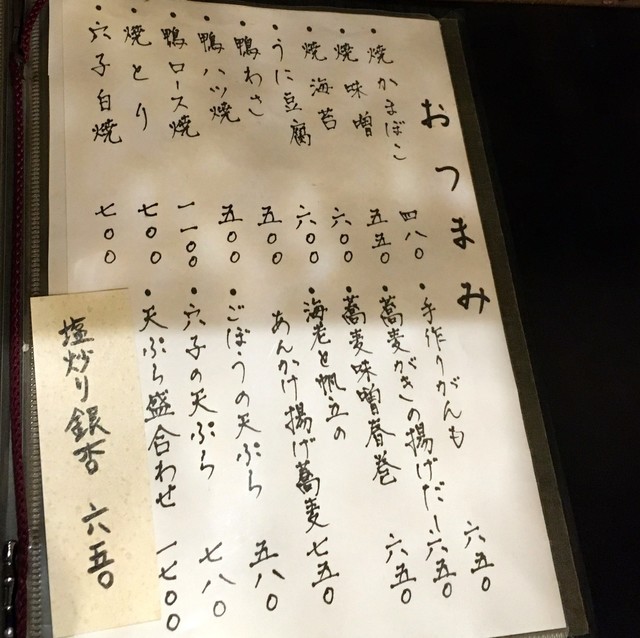 おつまみ
・焼かまぼこ 四八〇
・焼味噌 五五〇
・焼海苔 六〇〇
・うに豆腐 六〇〇
・鴨わさ 五〇〇
・鴨ハツ焼 五〇〇
・鴨ロース焼 一一〇〇
・焼とり 七〇〇
・穴子白焼 七〇〇
・手作りがんも 六五〇
・蕎麦がきの揚げだし 六五〇
・蕎麦味噌春巻 六五〇
・海老と帆立の
あんかけ揚げ蕎麦 七五〇
・ごぼうの天ぷら 五八〇
・穴子の天ぷら 七八〇
・天ぷら盛合わせ 一七〇〇
塩炒り銀杏 六五〇